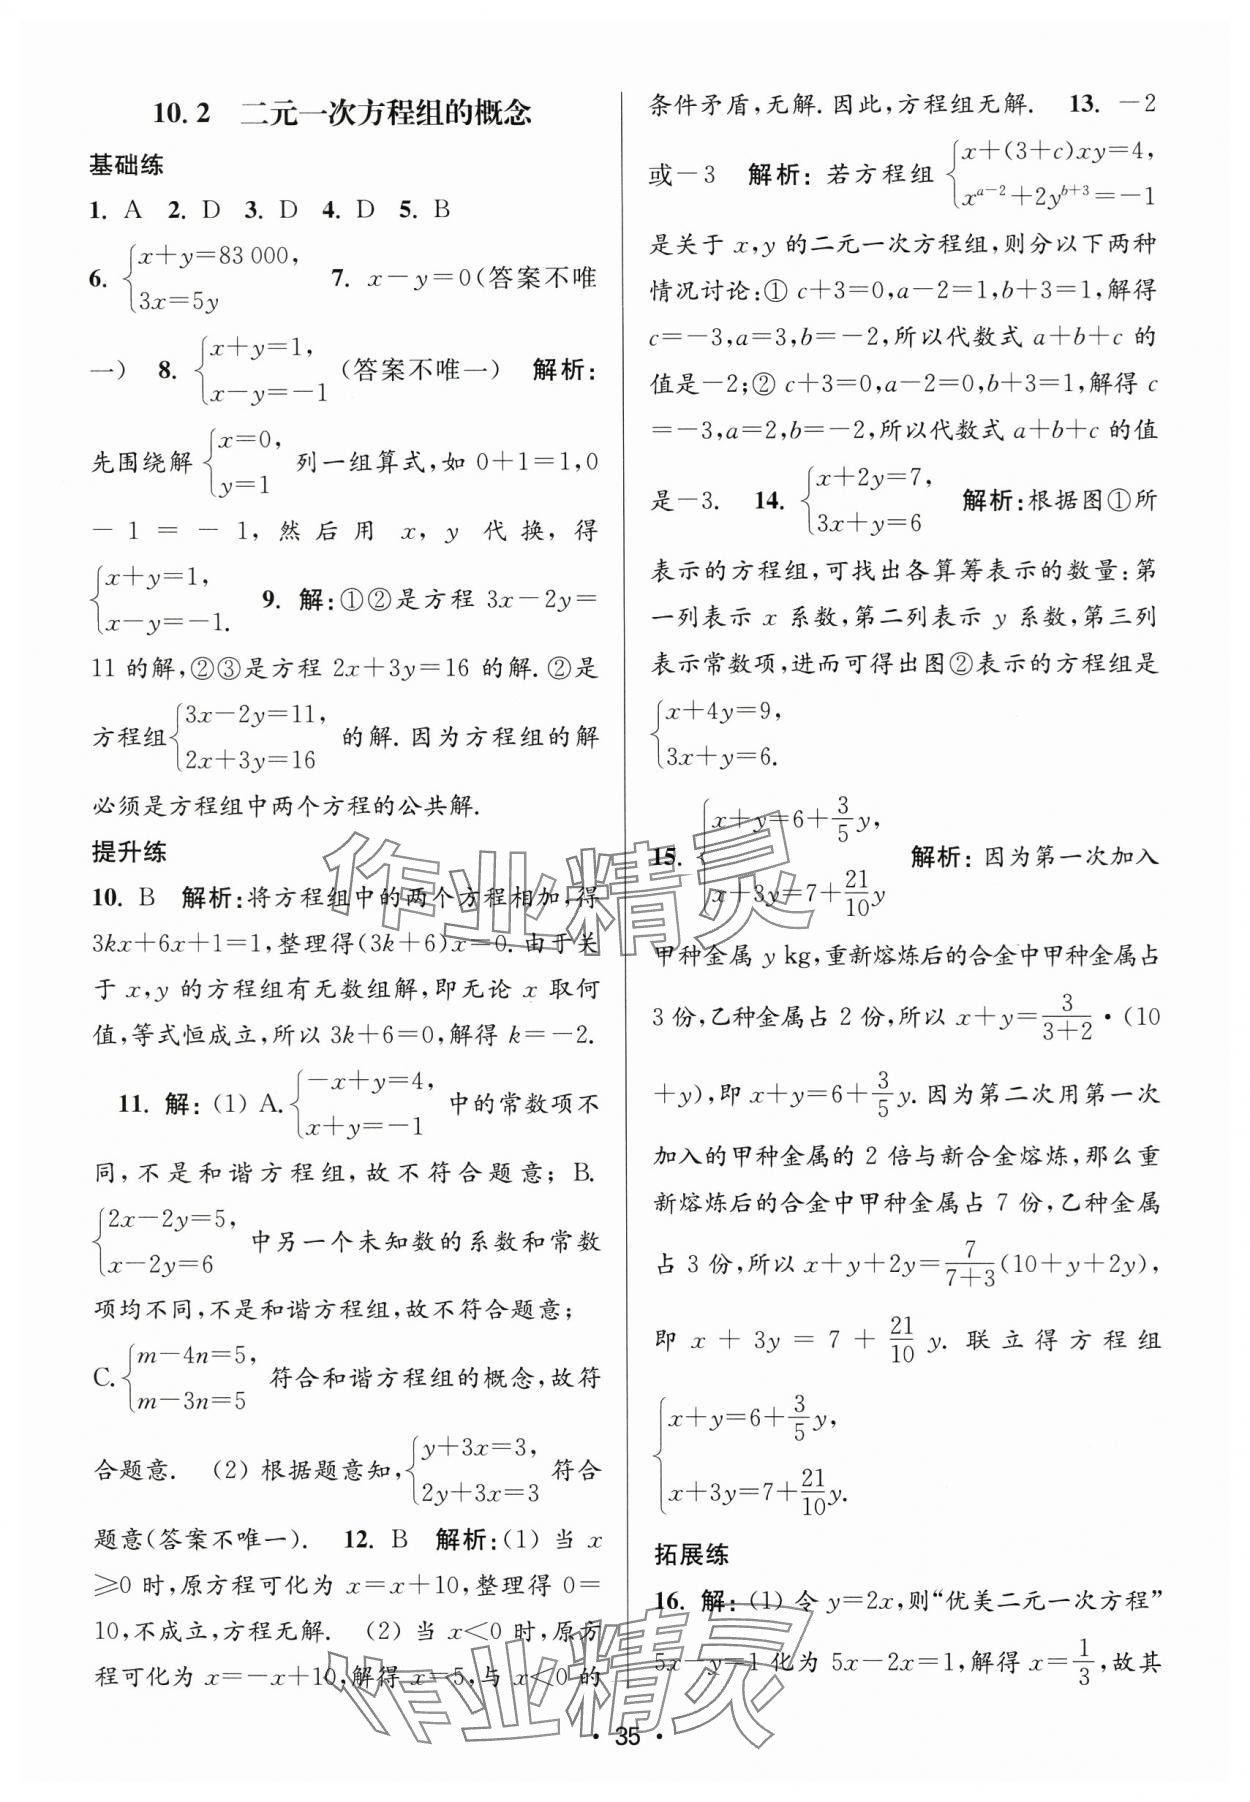 10.2 二元一次方程组的概念
基础练
1. A 2. D 3. D 4. D 5. B
6. {x+y=83 000, 3x=5y 7. x-y=0(答案不唯
一) 8. {x+y=1, x-y=-1 (答案不唯一) 解析:
先围绕解 {x=0, y=1 列一组算式,如 0+1=1,0
-1=-1,然后用 x,y 代换,得
{x+y=1, x-y=-1. 9. 解:①②是方程 3x-2y=
11 的解,②③是方程 2x+3y=16 的解.②是
方程组 {3x-2y=11, 2x+3y=16 的解.因为方程组的解
必须是方程组中两个方程的公共解.
提升练
10. B 解析:将方程组中的两个方程相加,得
3kx+6x+1=1,整理得(3k+6)x=0.由于关
于 x,y 的方程组有无数组解,即无论 x 取何
值,等式恒成立,所以 3k+6=0,解得 k=-2.
11. 解:(1) A. {-x+y=4, x+y=-1 中的常数项不
同,不是和谐方程组,故不符合题意;B.
{2x-2y=5, x-2y=6 中另一个未知数的系数和常数
项均不同,不是和谐方程组,故不符合题意;
C. {m-4n=5, m-3n=5 符合和谐方程组的概念,故符
合题意. (2) 根据题意知, {y+3x=3, 2y+3x=3 符合
题意(答案不唯一). 12. B 解析:(1) 当 x
≥0 时,原方程可化为 x=x+10,整理得 0=
10,不成立,方程无解. (2) 当 x<0 时,原方
程可化为 x=-x+10,解得 x=5,与 x<0 的
条件矛盾,无解.因此,方程组无解. 13. -2
或-3 解析:若方程组 {x+(3+c)xy=4, x^{a-2}+2y^{b+3}=-1
是关于 x,y 的二元一次方程组,则分以下两种
情况讨论:① c+3=0,a-2=1,b+3=1,解得
c=-3,a=3,b=-2,所以代数式 a+b+c 的
值是-2;② c+3=0,a-2=0,b+3=1,解得 c
=-3,a=2,b=-2,所以代数式 a+b+c 的值
是-3. 14. {x+2y=7, 3x+y=6 解析:根据图①所
表示的方程组,可找出各算筹表示的数量:第
一列表示 x 系数,第二列表示 y 系数,第三列
表示常数项,进而可得出图②表示的方程组是
{x+4y=9, 3x+y=6.
15. {x+y=6+3/5 y, x+3y=7+21/10 y 解析:因为第一次加入
甲种金属 y kg,重新熔炼后的合金中甲种金属占
3 份,乙种金属占 2 份,所以 x+y=3/(3+2)·(10
+y),即 x+y=6+3/5 y.因为第二次用第一次
加入的甲种金属的 2 倍与新合金熔炼,那么重
新熔炼后的合金中甲种金属占 7 份,乙种金属
占 3 份,所以 x+y+2y=7/(7+3)(10+y+2y),
即 x+3y=7+21/10 y.联立得方程组
{x+y=6+3/5 y, x+3y=7+21/10 y.
拓展练
16. 解:(1) 令 y=2x,则“优美二元一次方程”
5x-y=1 化为 5x-2x=1,解得 x=1/3,故其
作业精灵
作业精灵
· 35 ·